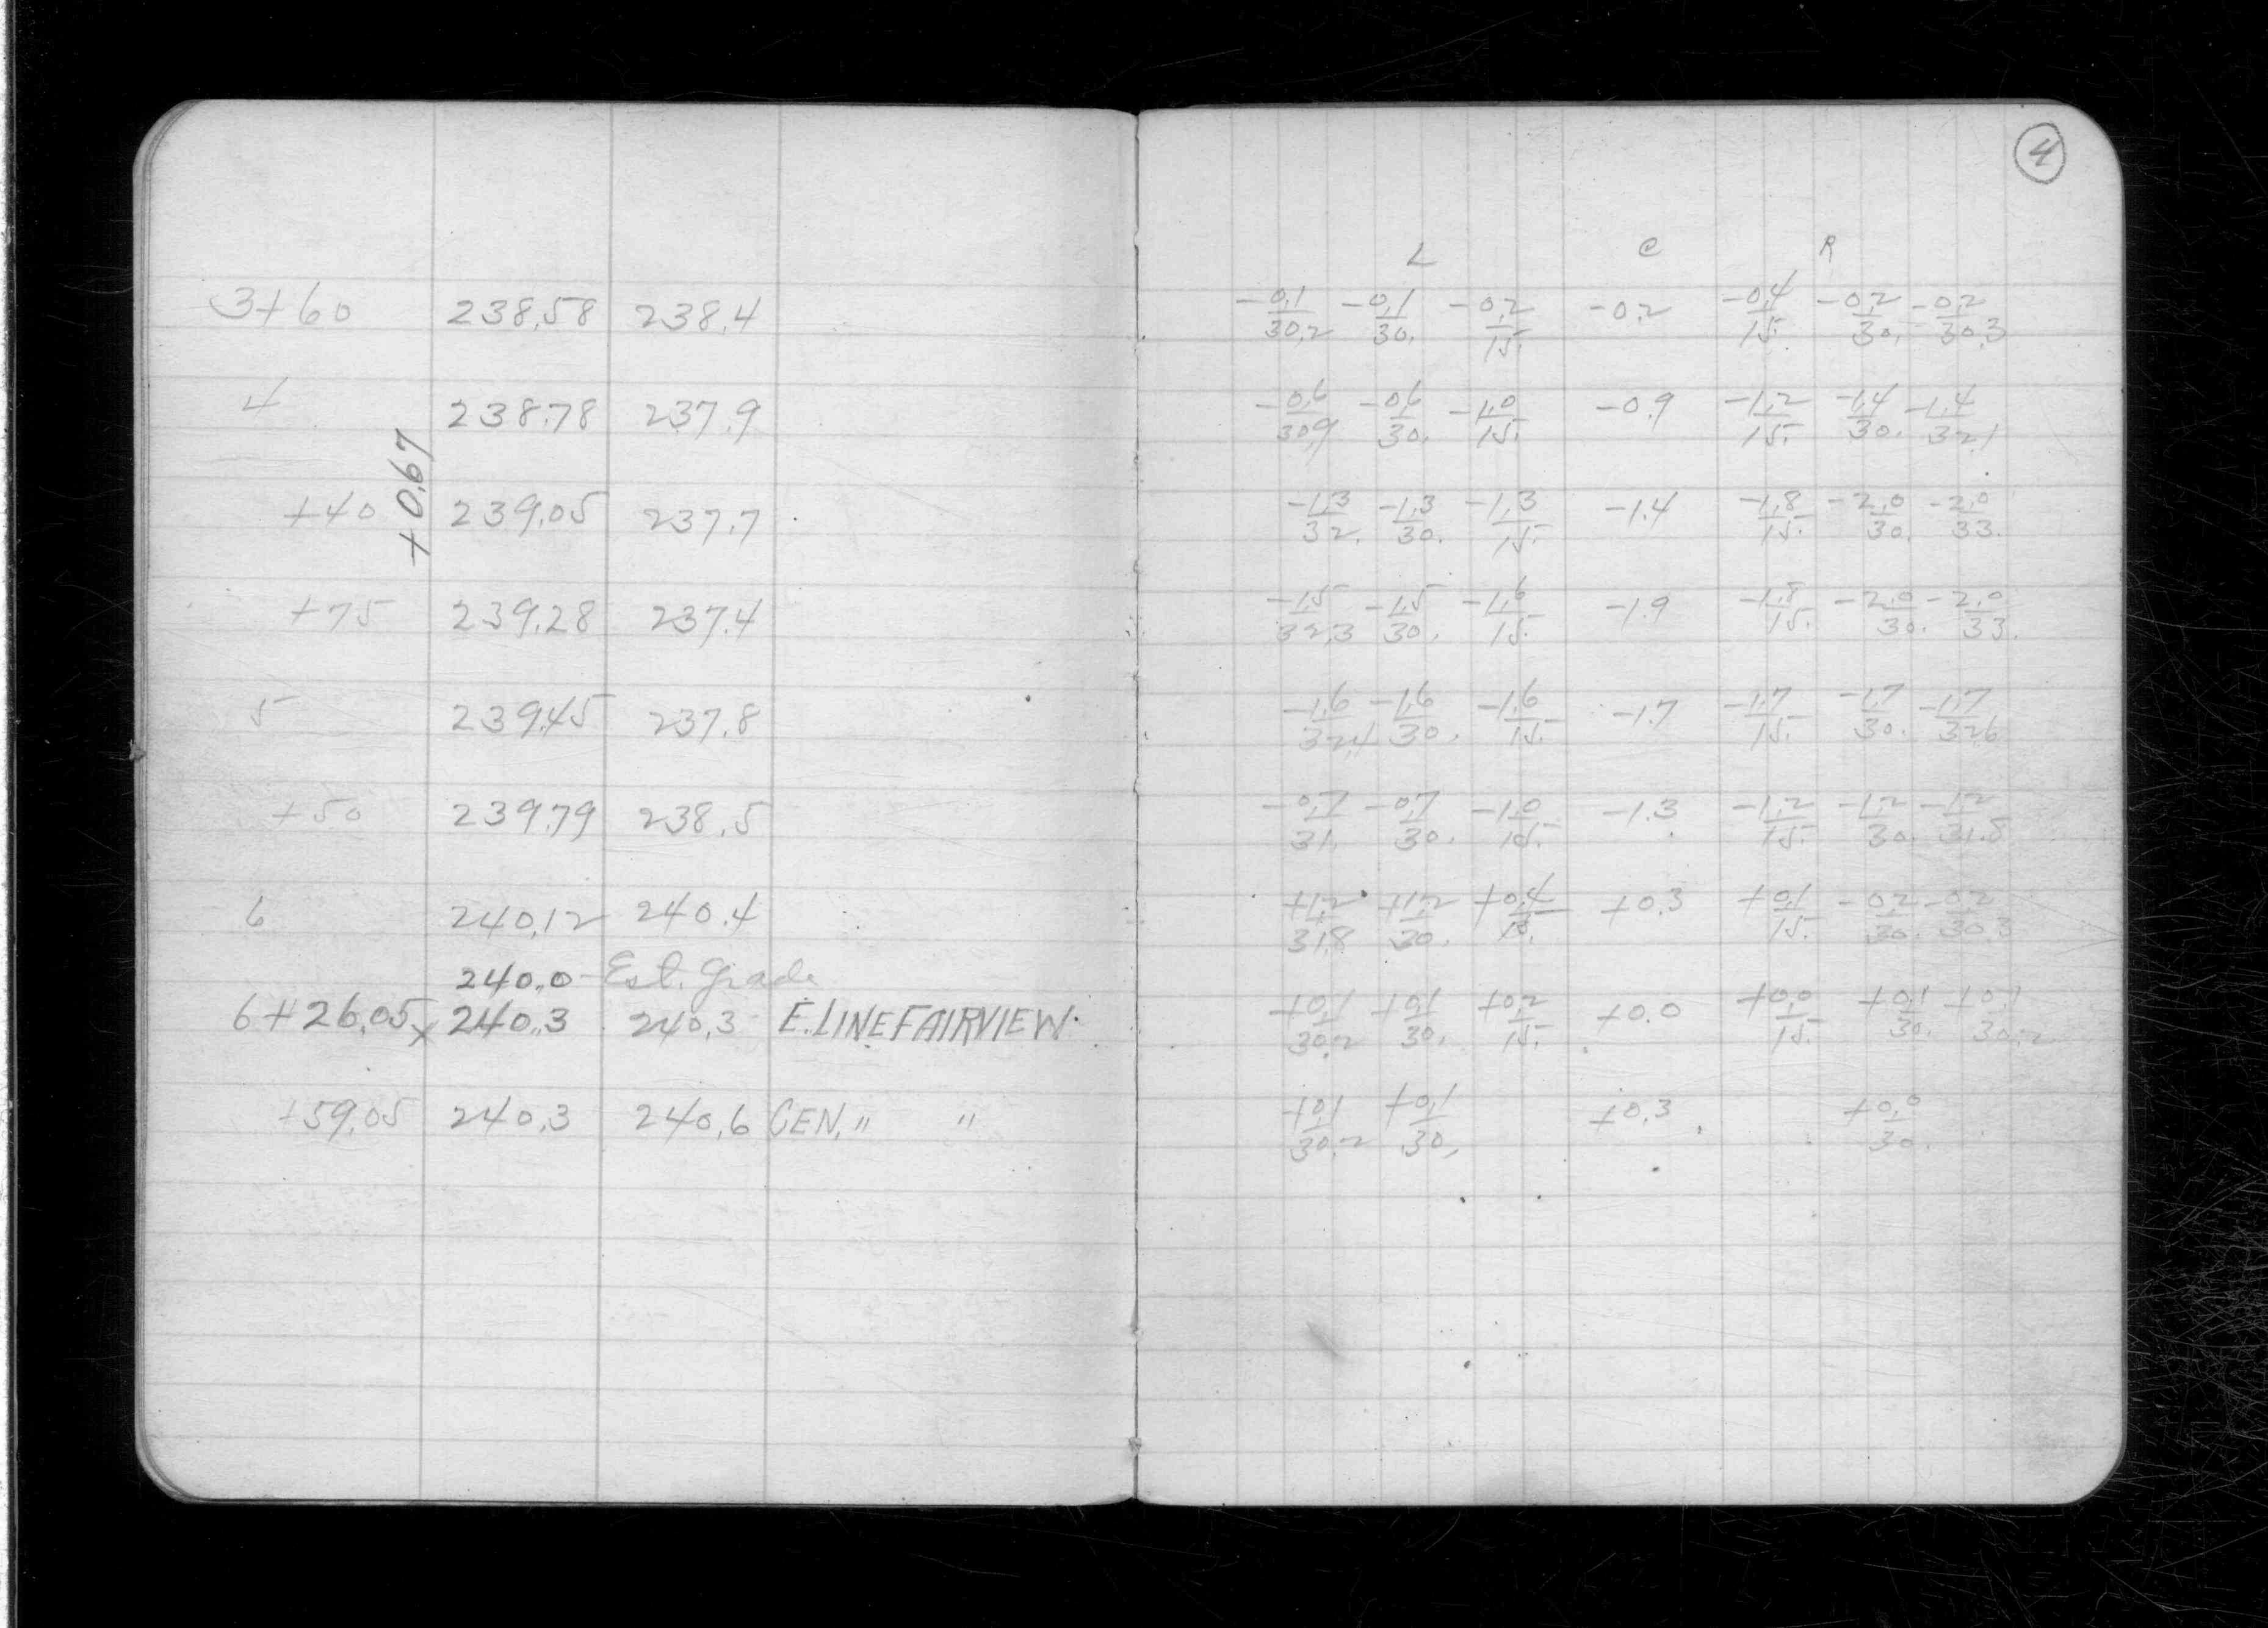 4
L C R
3+60 238.58 238.4 -0.1/30.2 -0.1/30. -0.2/15. -0.2 -0.4/15. -0.2/30. -0.2/30.3
4 238.78 237.9 -0.6/30.9 -0.6/30. -1.0/15. -0.9 -1.2/15. -1.4/30. -1.4/32.1
+0.67
+40 239.05 237.7 -1.3/32. -1.3/30. -1.3/15. -1.4 -1.8/15. -2.0/30. -2.0/33.
+75 239.28 237.4 -1.5/32.3 -1.5/30. -1.6/15. -1.9 -1.8/15. -2.0/30. -2.0/33.
5 239.45 237.8 -1.6/32.4 -1.6/30. -1.6/15. -1.7 -1.7/15. -1.7/30. -1.7/32.6
+50 239.79 238.5 -0.7/31. -0.7/30. -1.0/15. -1.3 -1.2/15. -1.2/30. -1.2/31.8
6 240.12 240.4 +1.2/31.8 +1.2/30. +0.4/15. +0.3 +0.1/15. -0.2/30. -0.2/30.3
240.0 - Est. Grade
6+26.05 x 240.3 240.3 E. LINE FAIRVIEW. +0.1/30.2 +0.1/30. +0.2/15. +0.0 +0.0/15. +0.1/30. +0.1/30.2
+59.05 240.3 240.6 CEN. " " +0.1/30.2 +0.1/30. +0.3 +0.0/30.